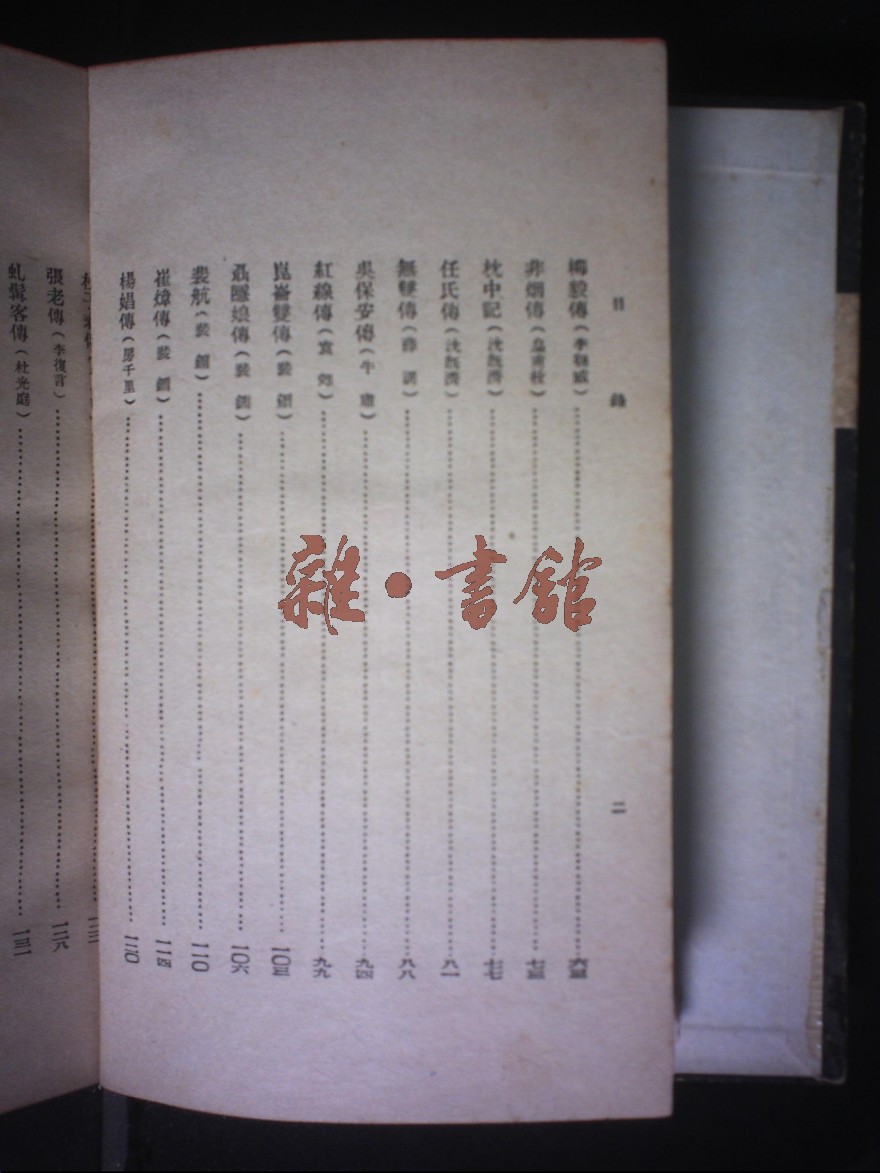 目錄
二
柳毅傳(李朝威)……六三
非烟傳(皇甫枚)……七三
枕中記(沈旣濟)……七七
任氏傳(沈旣濟)……八一
無雙傳(薛調)……八八
吳保安傳(牛肅)……九四
紅線傳(袁郊)……九九
崑崙
傳(裴鉶)……10三
聶隱娘傳(裴鉶)……10六
裴航(裴鉶)……110
崔煒傳(裴鉶)……11四
楊娼傳(房千里)……一二0
張老傳(李復言)……一二八
虬髯客傳(杜光庭)……一三一
雜·書館